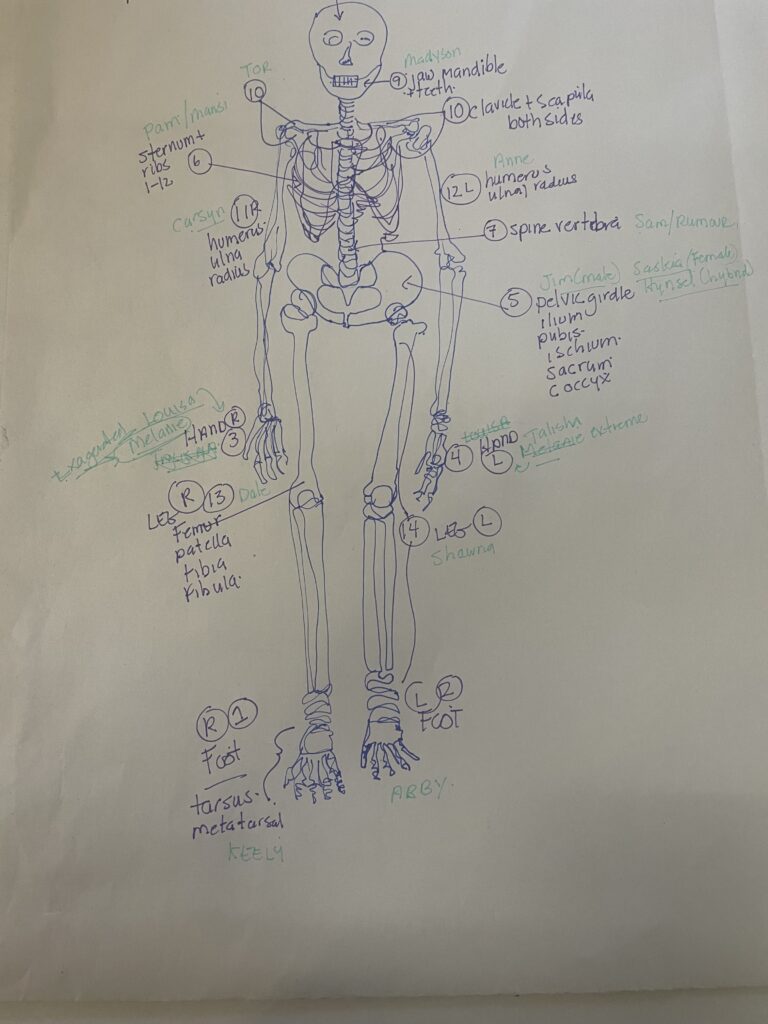 TOR
10
Madyson
9 jaw mandible
+ teeth.
10 clavicle + scapula
both sides
Pam/mansi
sternum +
ribs 6
1-12
Anne
12 L humerus
ulna, radius
Carsyn 11R
humerus.
ulna
radius
7 spine vertebra Sam/Rumour
Jim (male) Saskia/(Female)
(hybrid)
5 pelvic girdle
ilium
pubis.
ischium.
sacrum
coccyx
Louisa
Melanie
HAND R
3
LOUISA
4 HAND Talisha
L Melanie extreme
LEG R 13 Dale
Femur
patella
tibia
fibula.
14 LEG L
Shawna
L 2
FOOT
ABBY.
R 1
Foot
tarsus.
metatarsal
KEELY